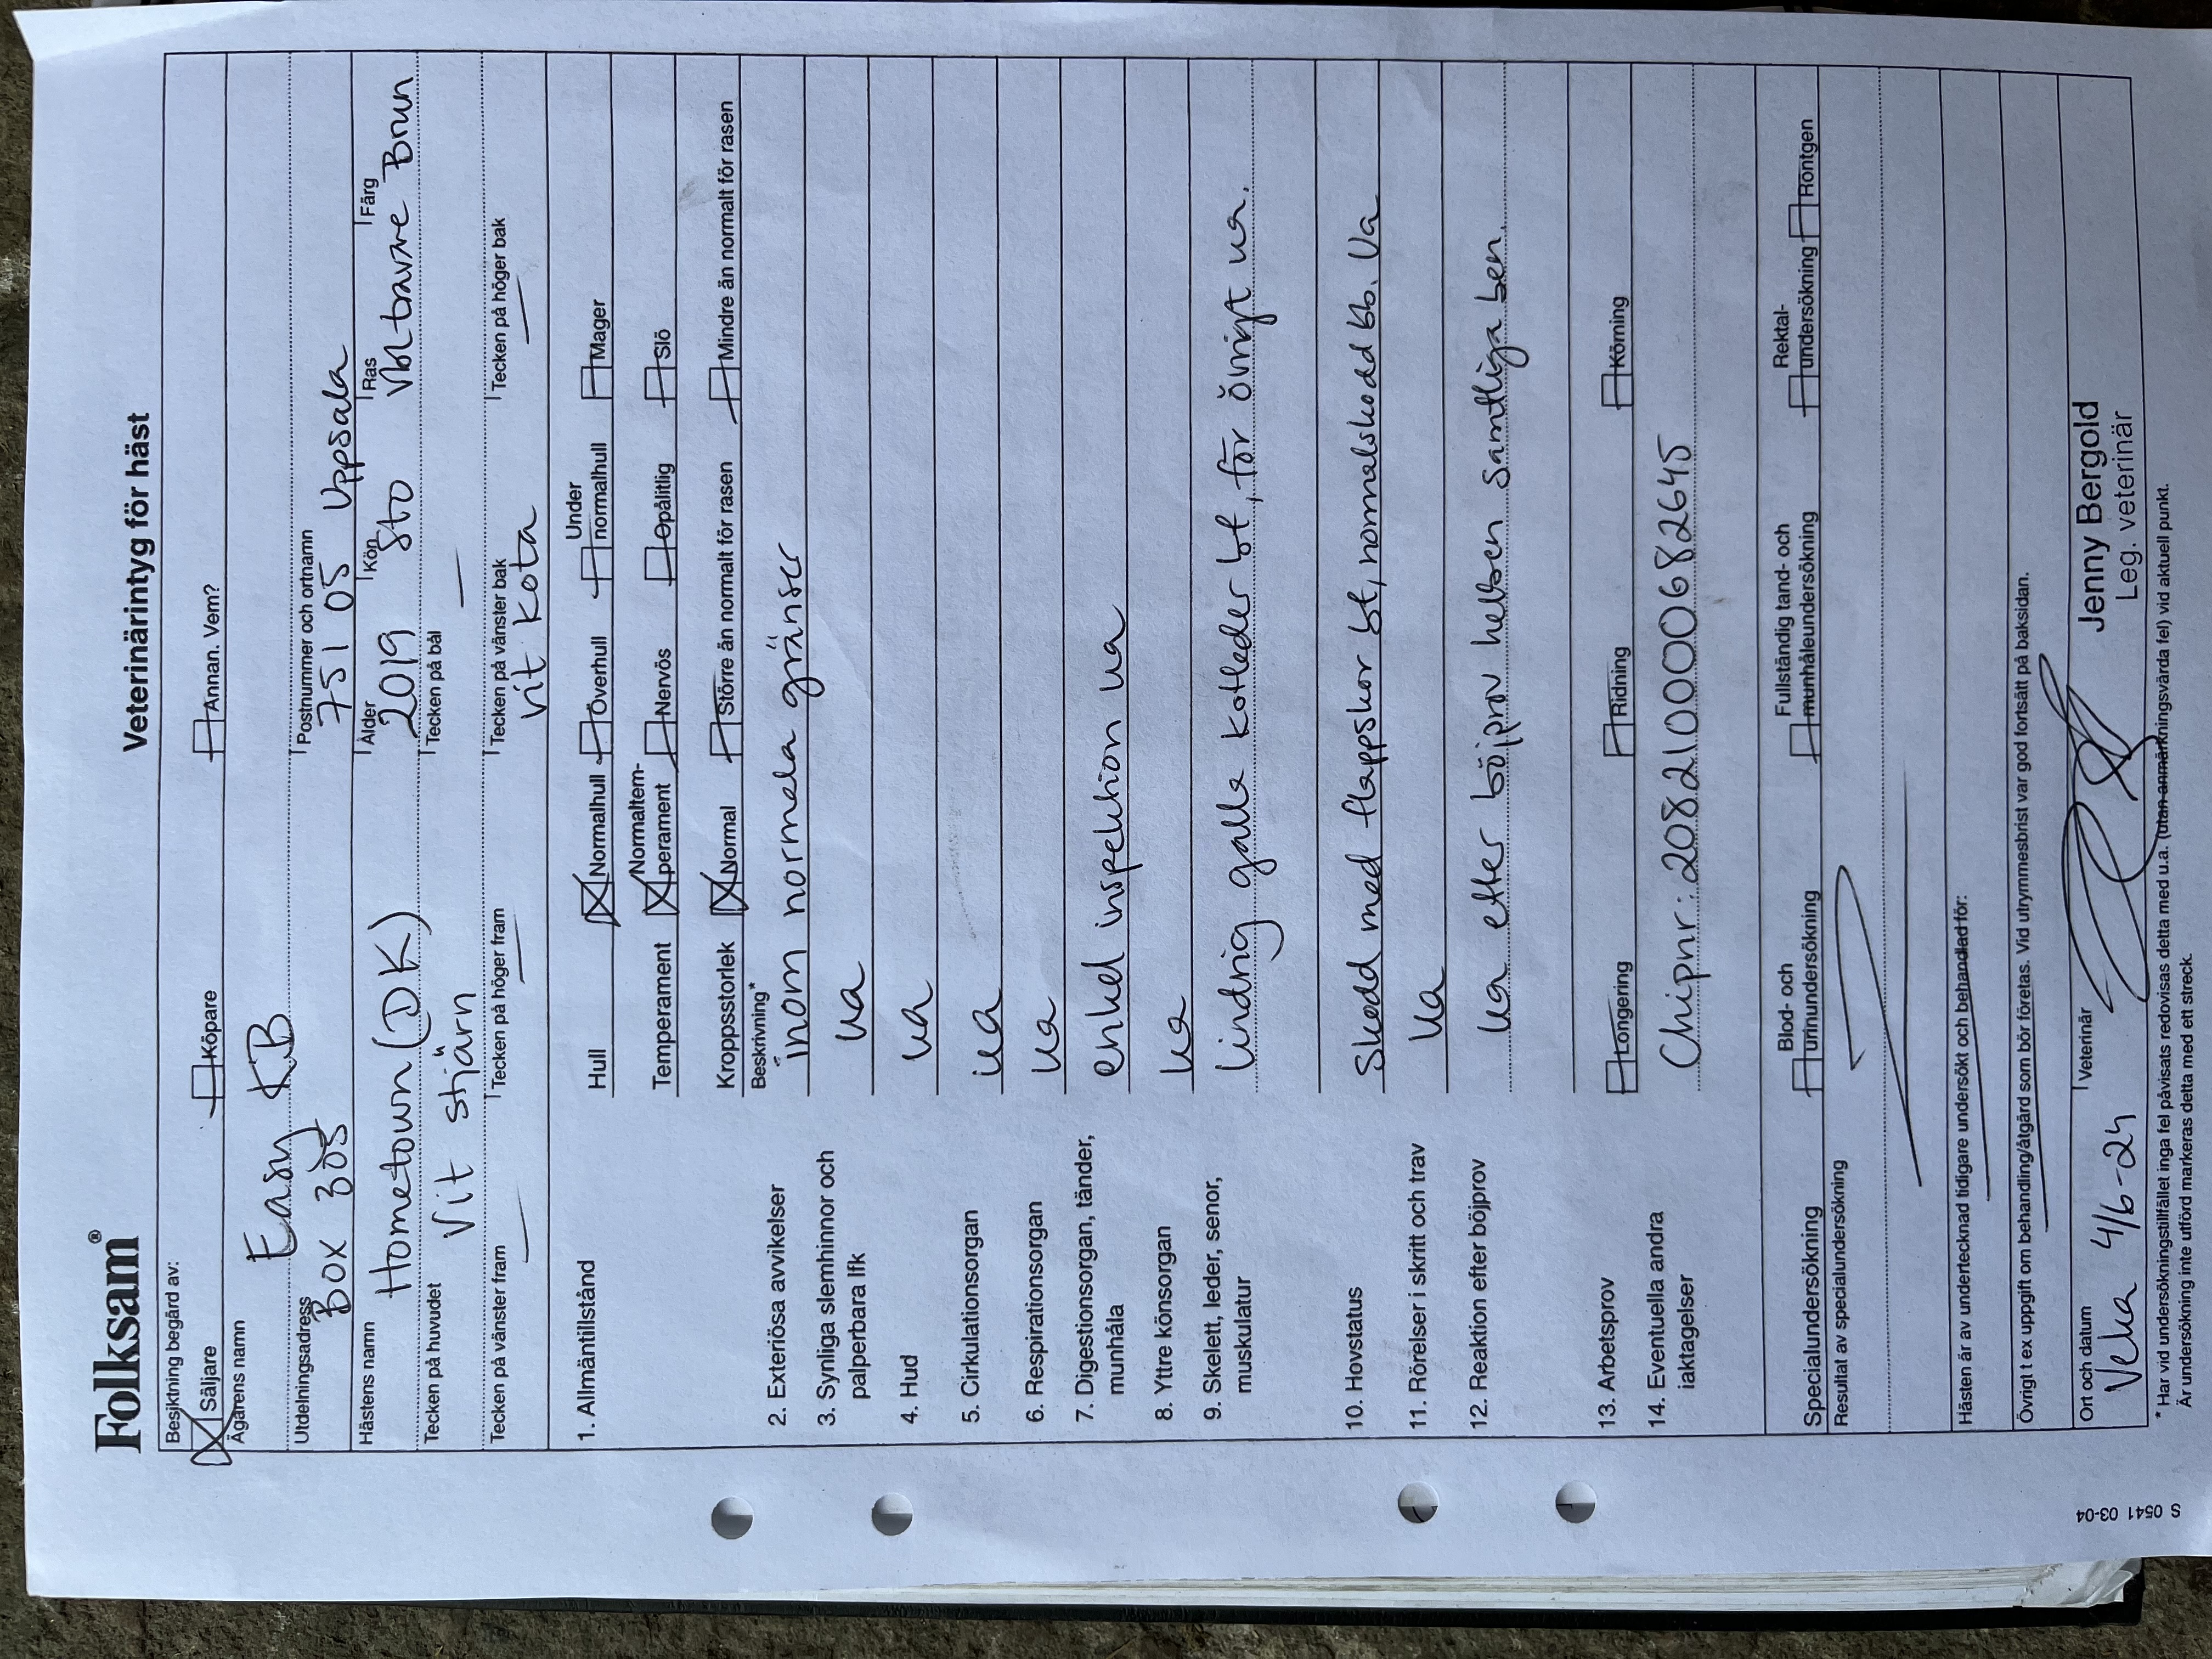 Folksam®
Veterinärintyg för häst
Besiktning begärd av:
Säljare Köpare Annan. Vem?
Ägarens namn
Easy KB
Utdelningsadress Postnummer och ortnamn
Box 305 751 05 Uppsala
Hästens namn Ålder Kön Ras Färg
Hometown (DK) 2019 Sto Vbltravare Brun
Tecken på huvudet Tecken på bål
Vit stjärn —
Tecken på vänster fram Tecken på höger fram Tecken på vänster bak Tecken på höger bak
— — vit kota —
1. Allmäntillstånd Hull Normalhull Överhull Under normalhull Mager
Temperament Normaltem-perament Nervös Opålitlig Slö
Kroppsstorlek Normal Större än normalt för rasen Mindre än normalt för rasen
Beskrivning*
2. Exteriösa avvikelser inom normala gränser
3. Synliga slemhinnor och ua
palperbara lfk
4. Hud ua
5. Cirkulationsorgan ua
6. Respirationsorgan ua
7. Digestionsorgan, tänder, enkel inspektion ua
munhåla
8. Yttre könsorgan ua
9. Skelett, leder, senor, lindrig galla kotleder bf, för övrigt ua.
muskulatur
10. Hovstatus Skodd med flappskor bf, normalskodd bb. Ua
11. Rörelser i skritt och trav ua
12. Reaktion efter böjprov ua efter böjprov helben samtliga ben.
13. Arbetsprov Longering Ridning Körning
14. Eventuella andra Chipnr: 208210000682645
iaktagelser
Specialundersökning Blod- och urinundersökning Fullständig tand- och munhåleundersökning Rektal-undersökning Röntgen
Resultat av specialundersökning
Hästen är av undertecknad tidigare undersökt och behandlad för:
Övrigt t ex uppgift om behandling/åtgärd som bör företas. Vid utrymmesbrist var god fortsätt på baksidan.
Ort och datum Veterinär
4/6-24 Jenny Bergold
Leg. veterinär
* Har vid undersökningstillfället inga fel påvisats redovisas detta med u.a. (utan anmärkningsvärda fel) vid aktuell punkt.
Är undersökning inte utförd markeras detta med ett streck.
S 0541 03-04